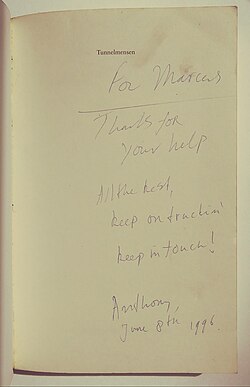 Tunnelmensen
For Marcus
Thanks for
your help
All the best,
keep on truckin'
keep in touch!
Anthony,
June 8th, 1996.